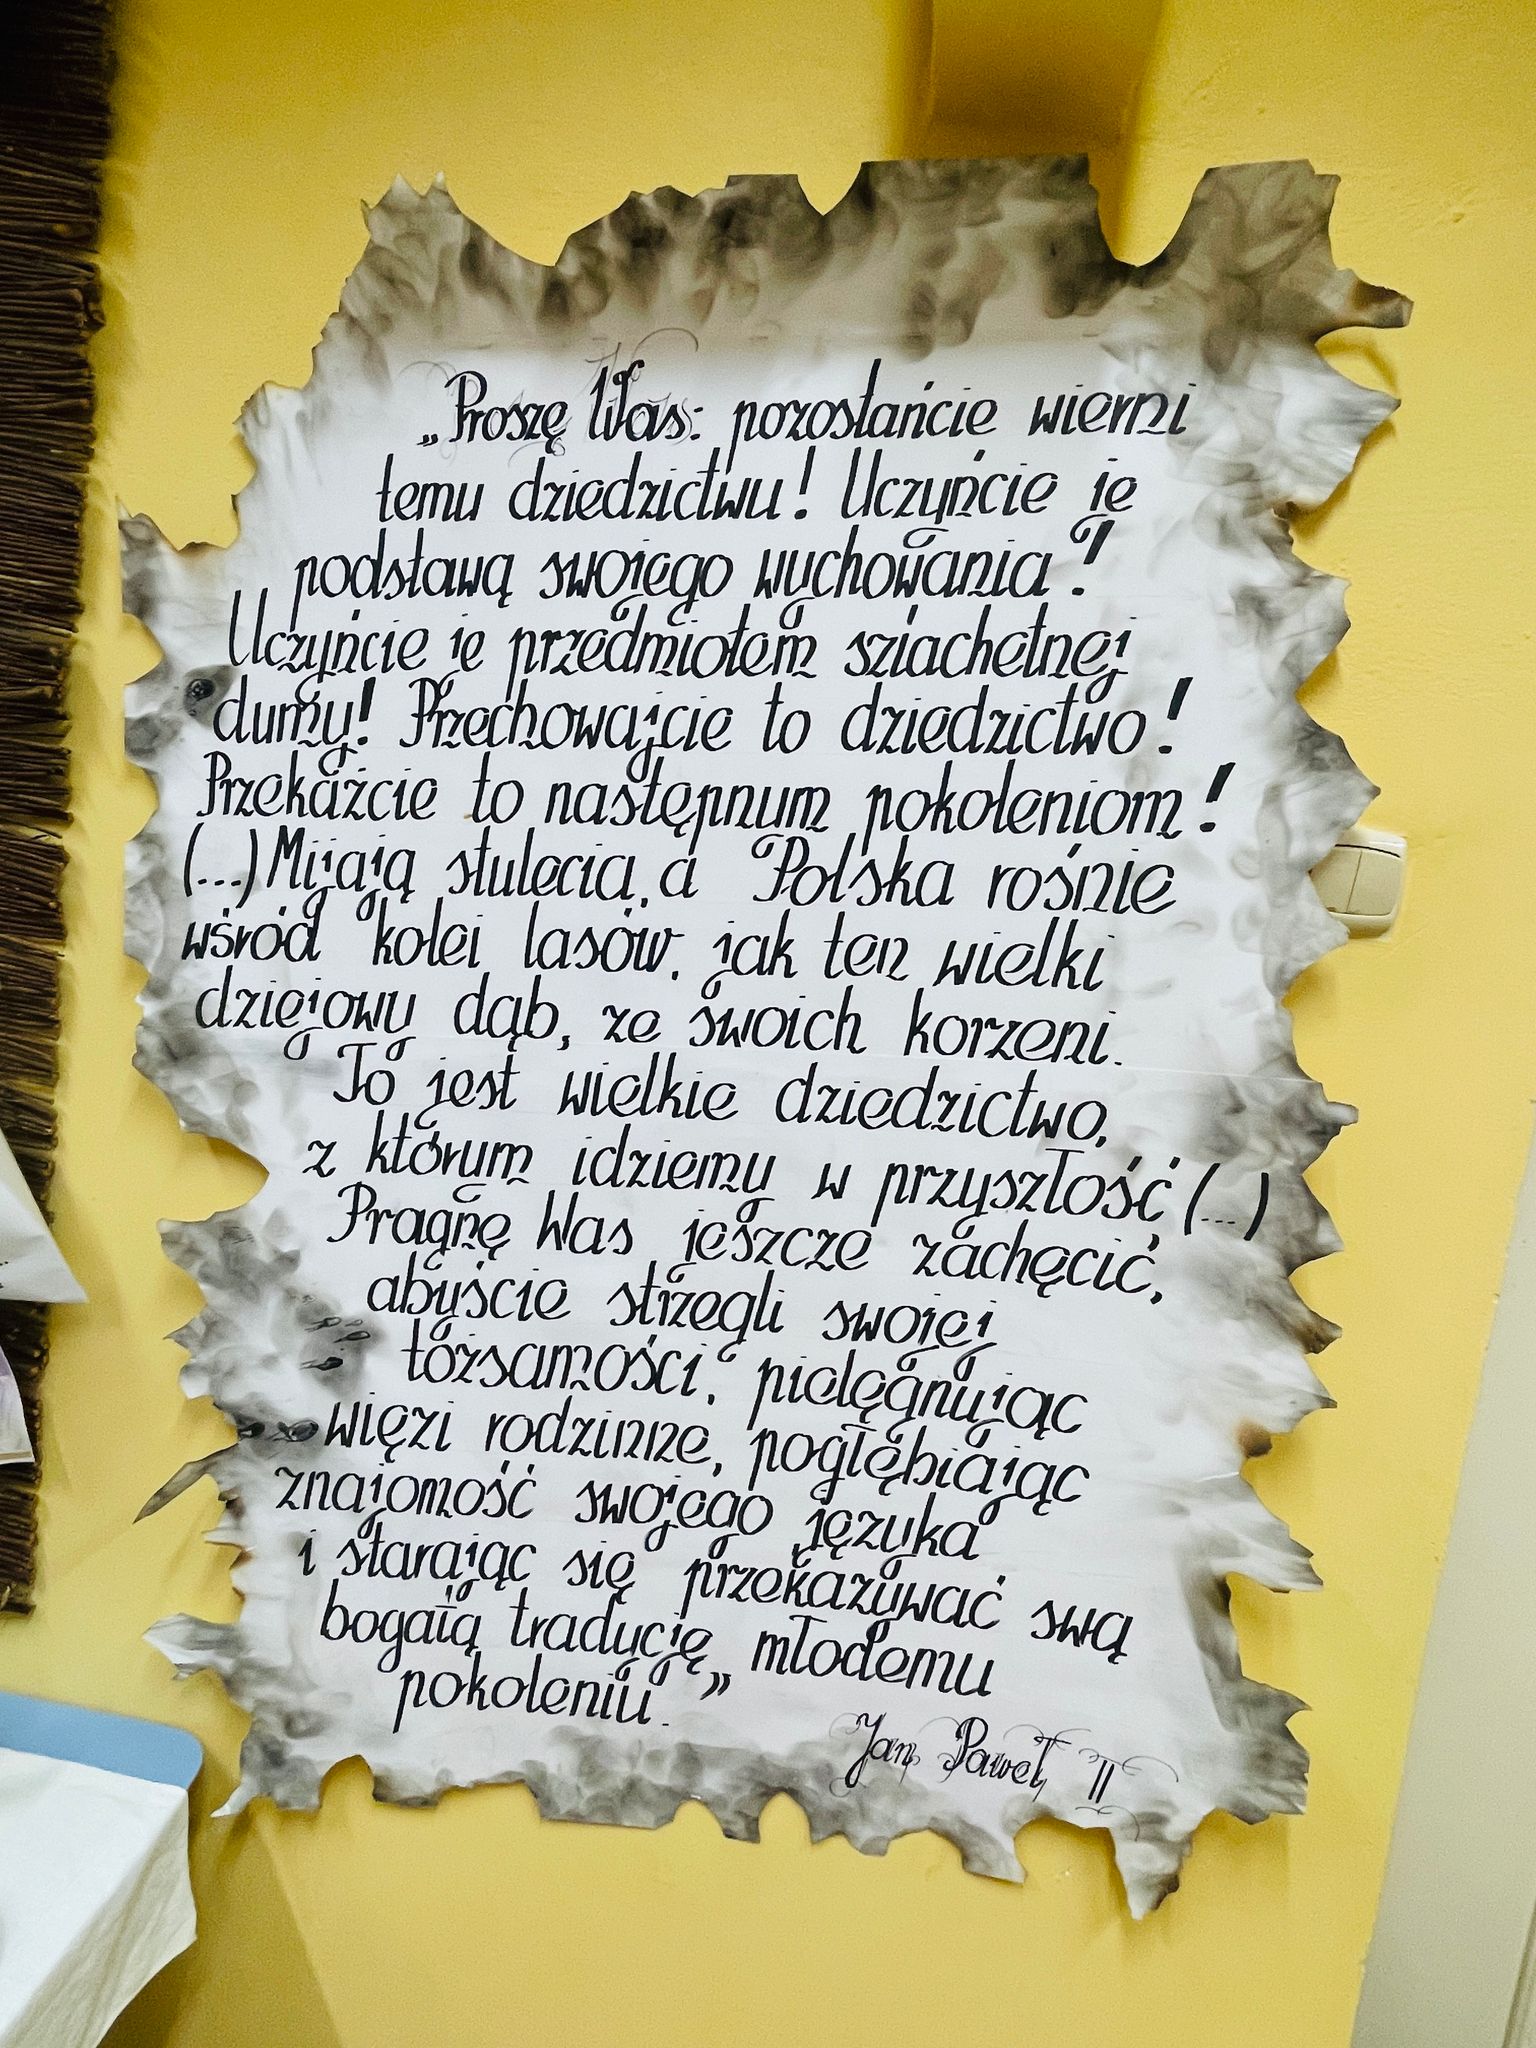 „Proszę Was: pozostańcie wierni
temu dziedzictwu! Uczyńcie je
podstawą swojego wychowania!
Uczyńcie je przedmiotem szlachetnej
dumy! Przechowajcie to dziedzictwo!
Przekażcie to następnym pokoleniom!
(...) Mijają stulecia, a Polska rośnie
wśród kolei lasów, jak ten wielki
dziejowy dąb, ze swoich korzeni.
To jest wielkie dziedzictwo,
z którym idziemy w przyszłość, (...)
Pragnę Was jeszcze zachęcić,
abyście strzegli swojej
tożsamości, pielęgnując
więzi rodzinne, pogłębiając
znajomość swojego języka
i starając się przekazywać swą
bogatą tradycję młodemu
pokoleniu.”
Jan Paweł II